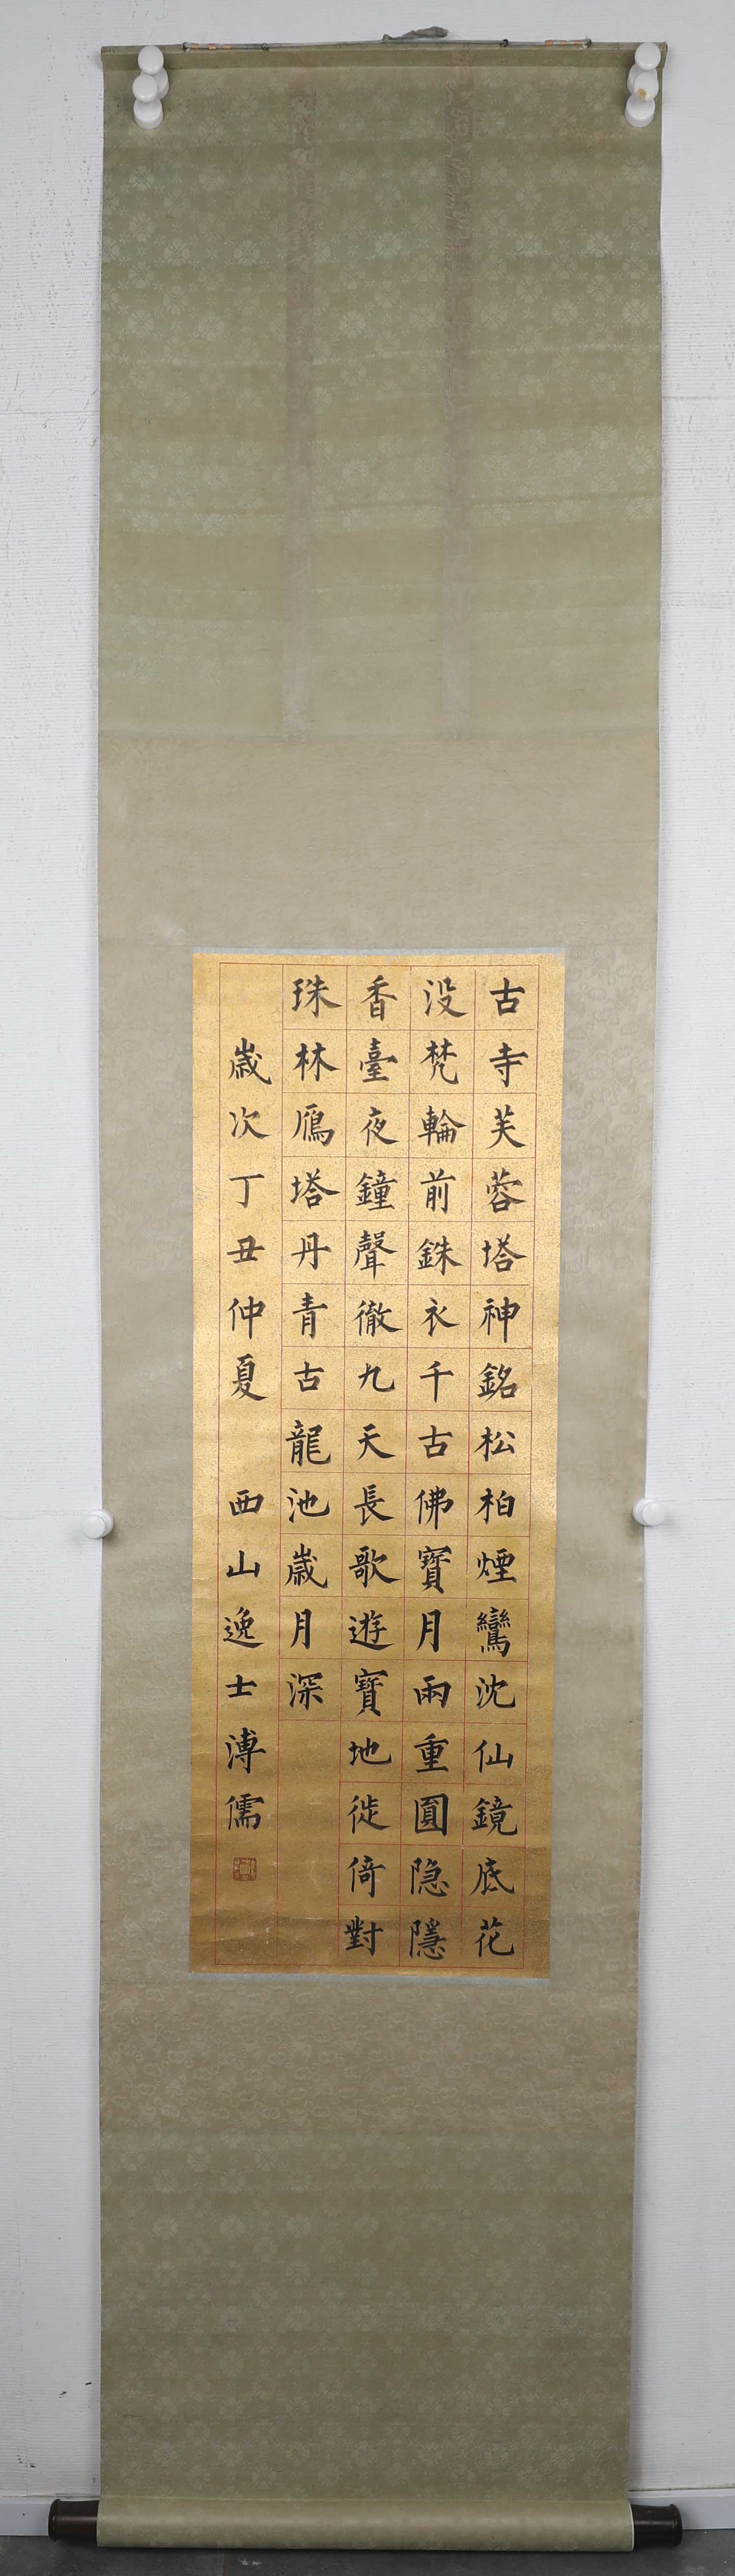 古寺芙蓉塔神銘松柏煙鸞沈仙鏡底花
没梵輪前銖衣千古佛寳月兩重圓隐隱
香臺夜鐘聲徹九天長歌遊寳地徙倚對
珠林鴈塔丹青古龍池歲月深
歲次丁丑仲夏 西山逸士溥儒